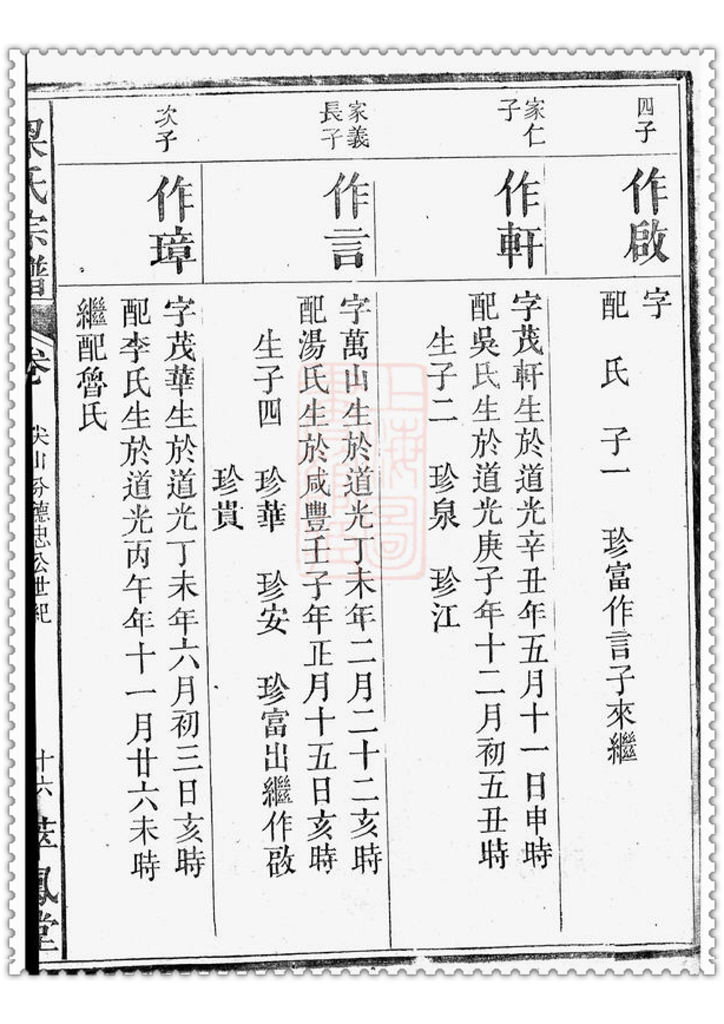 四子
作啟
字
配　氏　子一　珍富作言子來繼
家仁
子
作軒
字茂軒生於道光辛丑年五月十一日申時
配吳氏生於道光庚子年十二月初五丑時
生子二　珍泉　珍江
家義
長子
作言
字萬山生於道光丁未年二月二十二亥時
配湯氏生於咸豐壬子年正月十五日亥時
生子四　珍華　珍安　珍富出繼作啟
珍貴
次子
作璋
字茂華生於道光丁未年六月初三日亥時
配李氏生於道光丙午年十一月廿六未時
繼配魯氏
梁氏宗譜
卷
尖山分德忠公世紀
十六
萃鳳堂